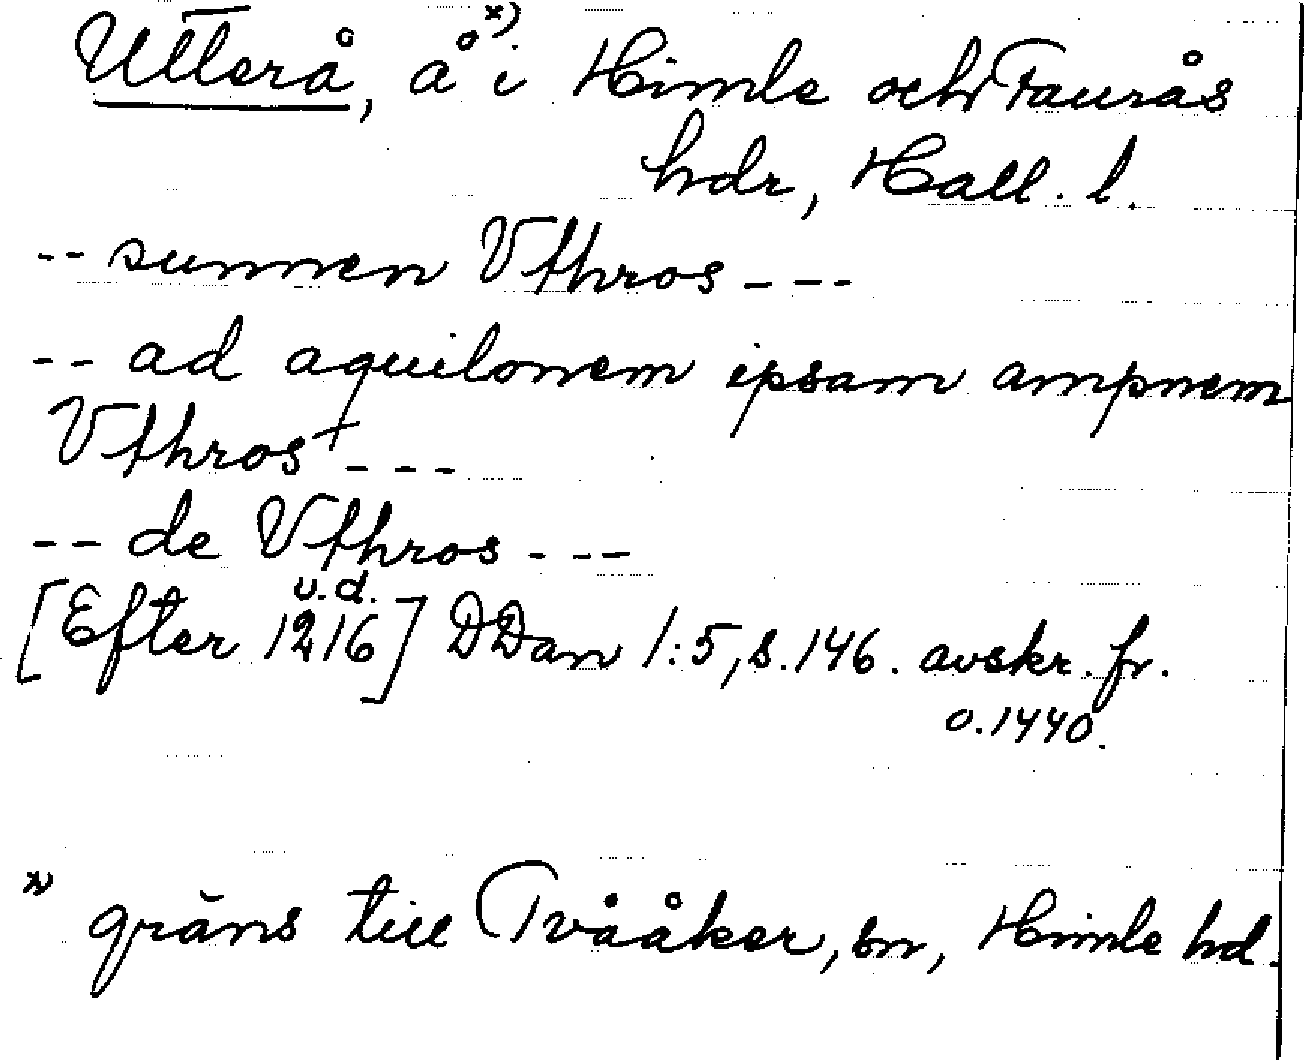 Utterå, å x) i Himle och Faurås
hdr, Hall. l.
-- sunnen Vthros ---
-- ad aquilonem ipsam ampnem
Vthros+ ---
-- de Vthros ---
u.d.
[Efter 1216] DDan 1:5, s. 146. avskr. fr.
o. 1440.
x) gräns till Tvååker, sn, Himle hd.